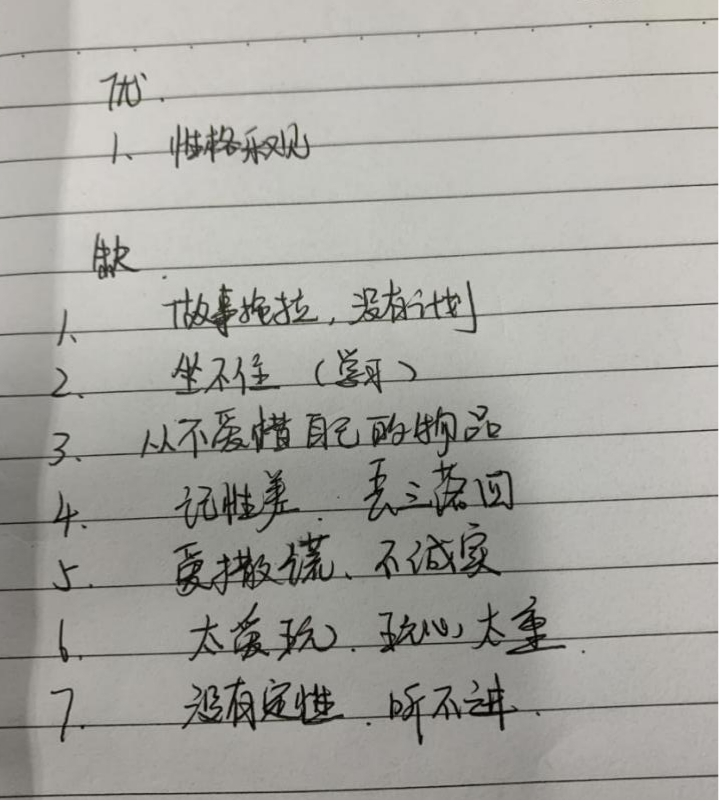 优.
1、性格乐观
缺.
1、做事拖拉,没有计划
2、坐不住(学习)
3、从不爱惜自己的物品
4、记性差.丢三落四
5、爱撒谎、不诚实
6、太爱玩、玩心太重.
7、没有定性.听不进.